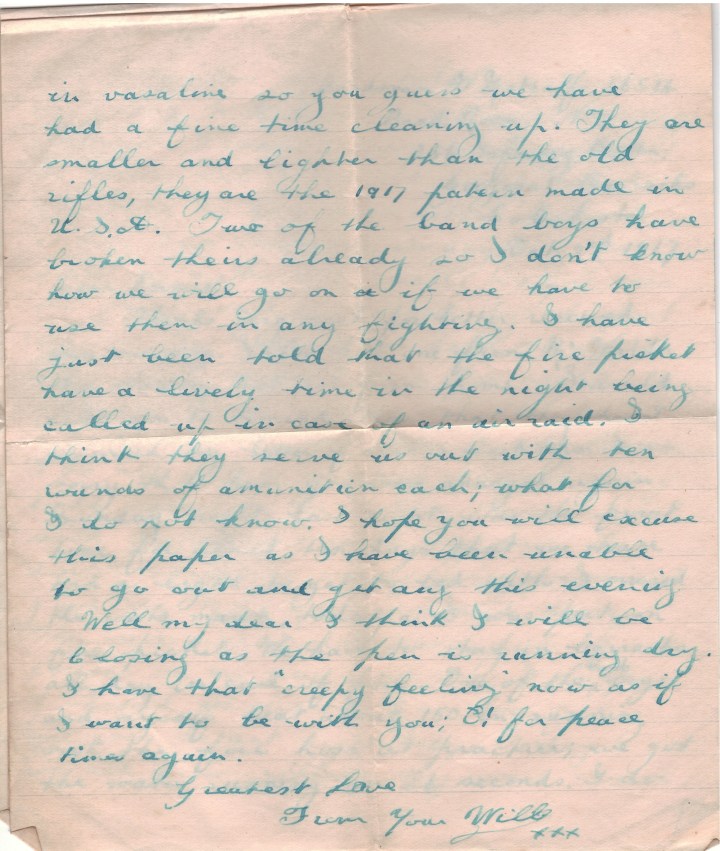 in vasaline so you guess we have
had a fine time cleaning up. They are
smaller and lighter than the old
rifles, they are the 1917 patern made in
U.S.A. Two of the band boys have
broken theirs already so I don't know
how we will go on if we have to
use them in any fighting. I have
just been told that the fire picket
have a lively time in the night being
called up in case of an air raid. I
think they serve us out with ten
rounds of amunition each; what for
I do not know. I hope you will excuse
this paper as I have been unable
to go out and get any this evening
Well my dear I think I will be
closing as the pen is running dry.
I have that "creepy feeling" now as if
I want to be with you; O! for peace
times again.
Greatest Love
From Your Will
xxx